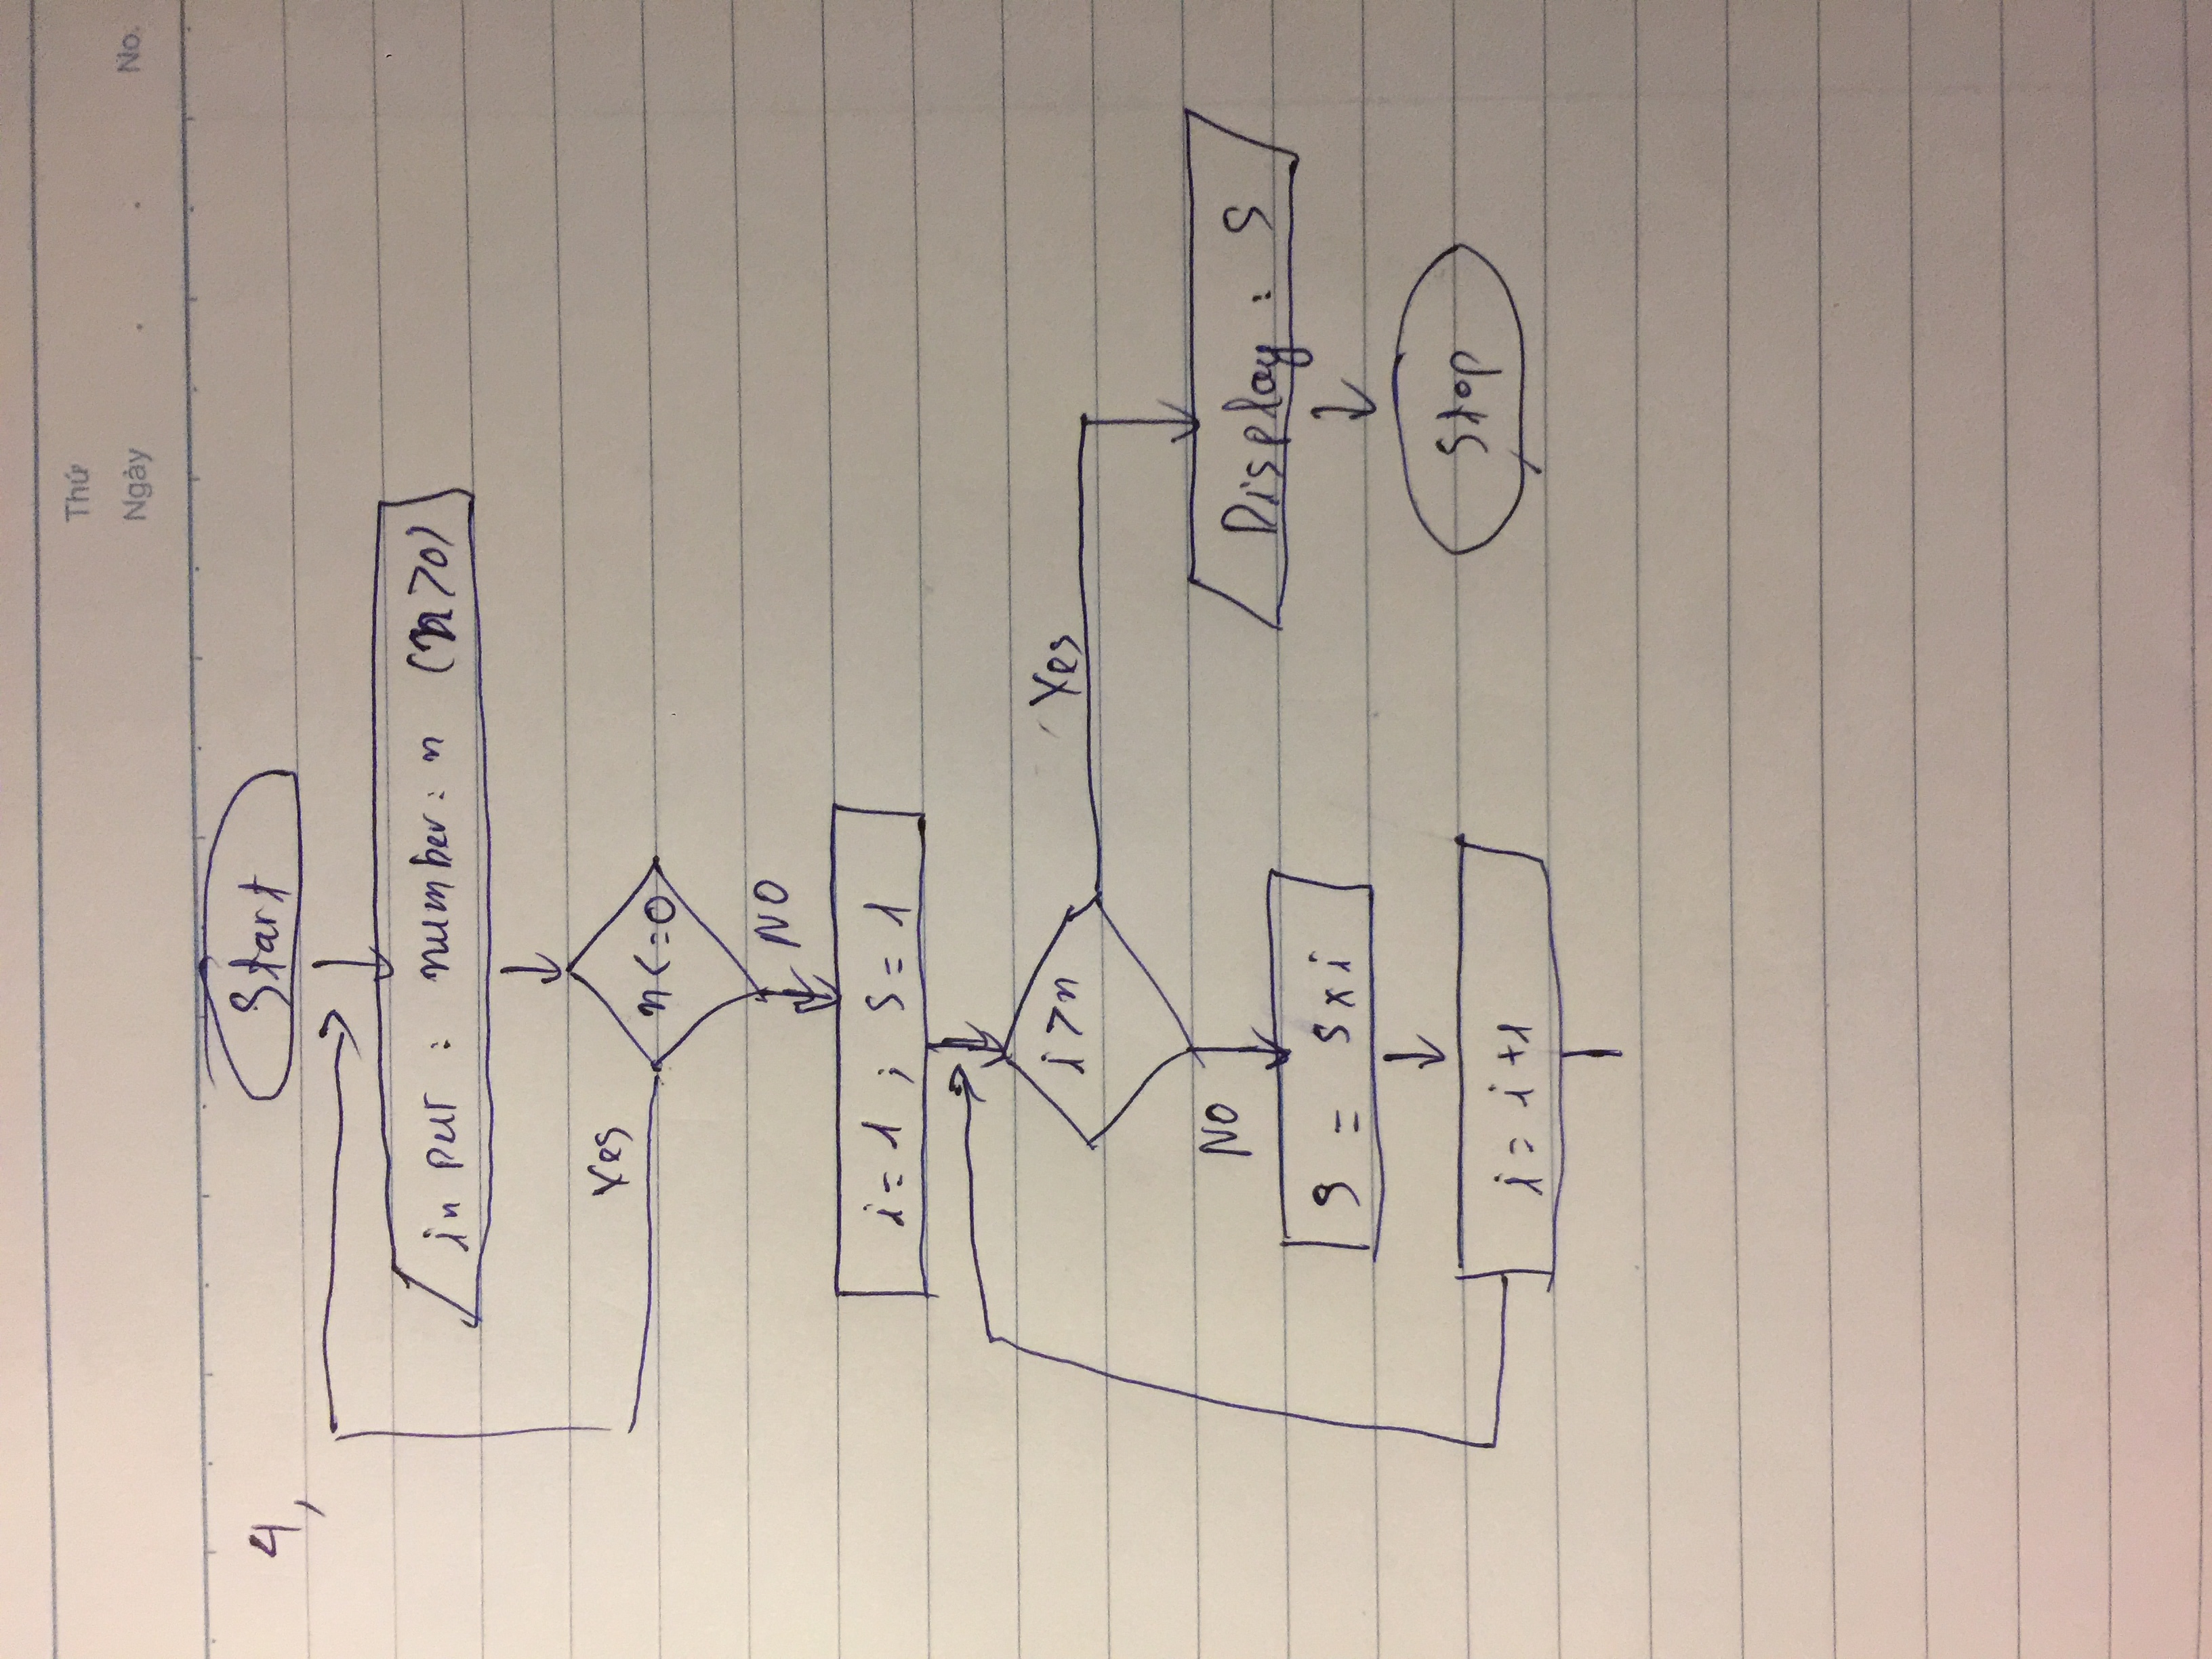 Thứ
Ngày . . No.
4,
Start
input : number : n (n>0)
Yes
n<=0
NO
i=1 ; S=1
i>n
Yes
NO
Display : S
S = S x i
Stop
i=i+1